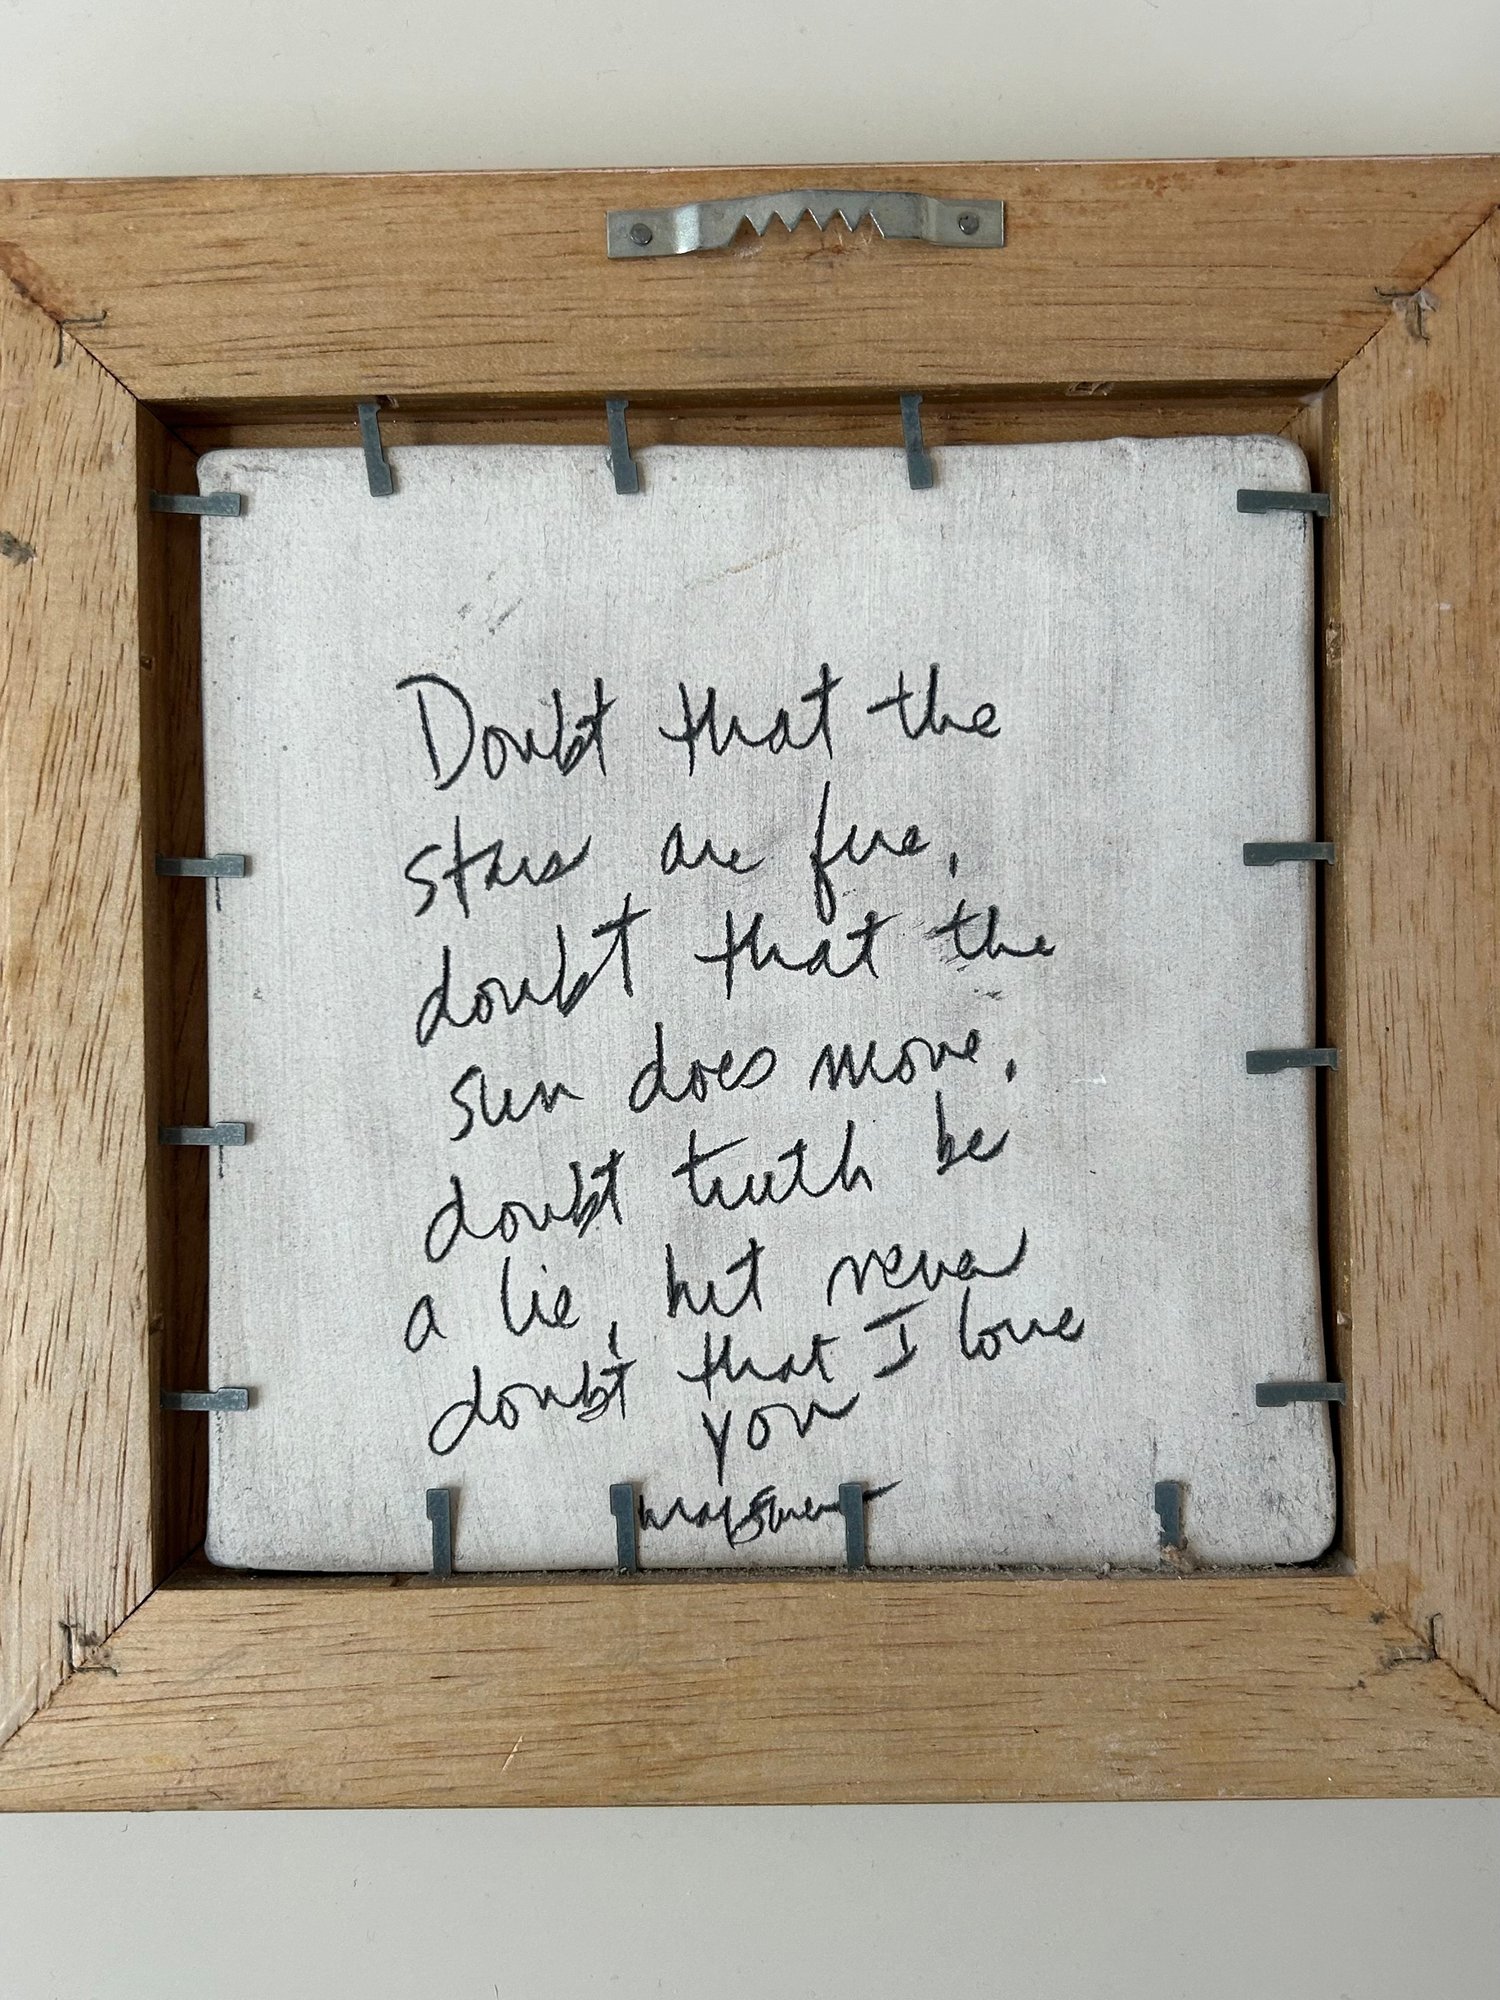 Doubt that the
stars are fire,
doubt that the
sun does move,
doubt truth be
a lie, but never
doubt that I love
you